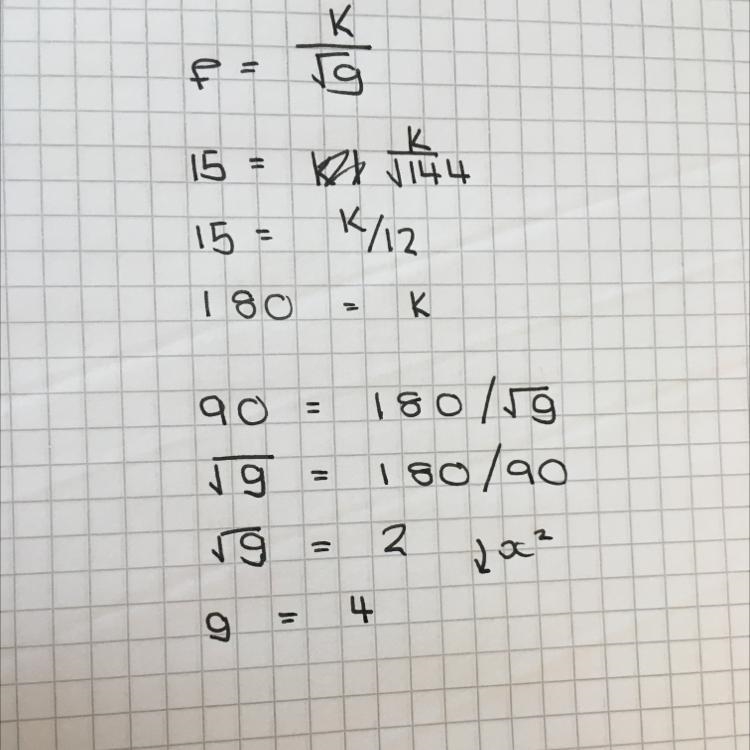 f = K/√g
15 = K/√144
15 = K/12
180 = K
90 = 180/√g
√g = 180/90
√g = 2 ↓x²
g = 4